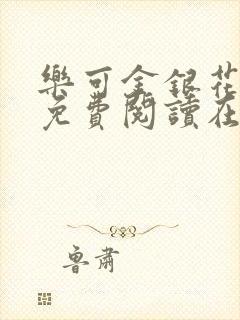 樂可金銀花
免費閱讀在
魯肅